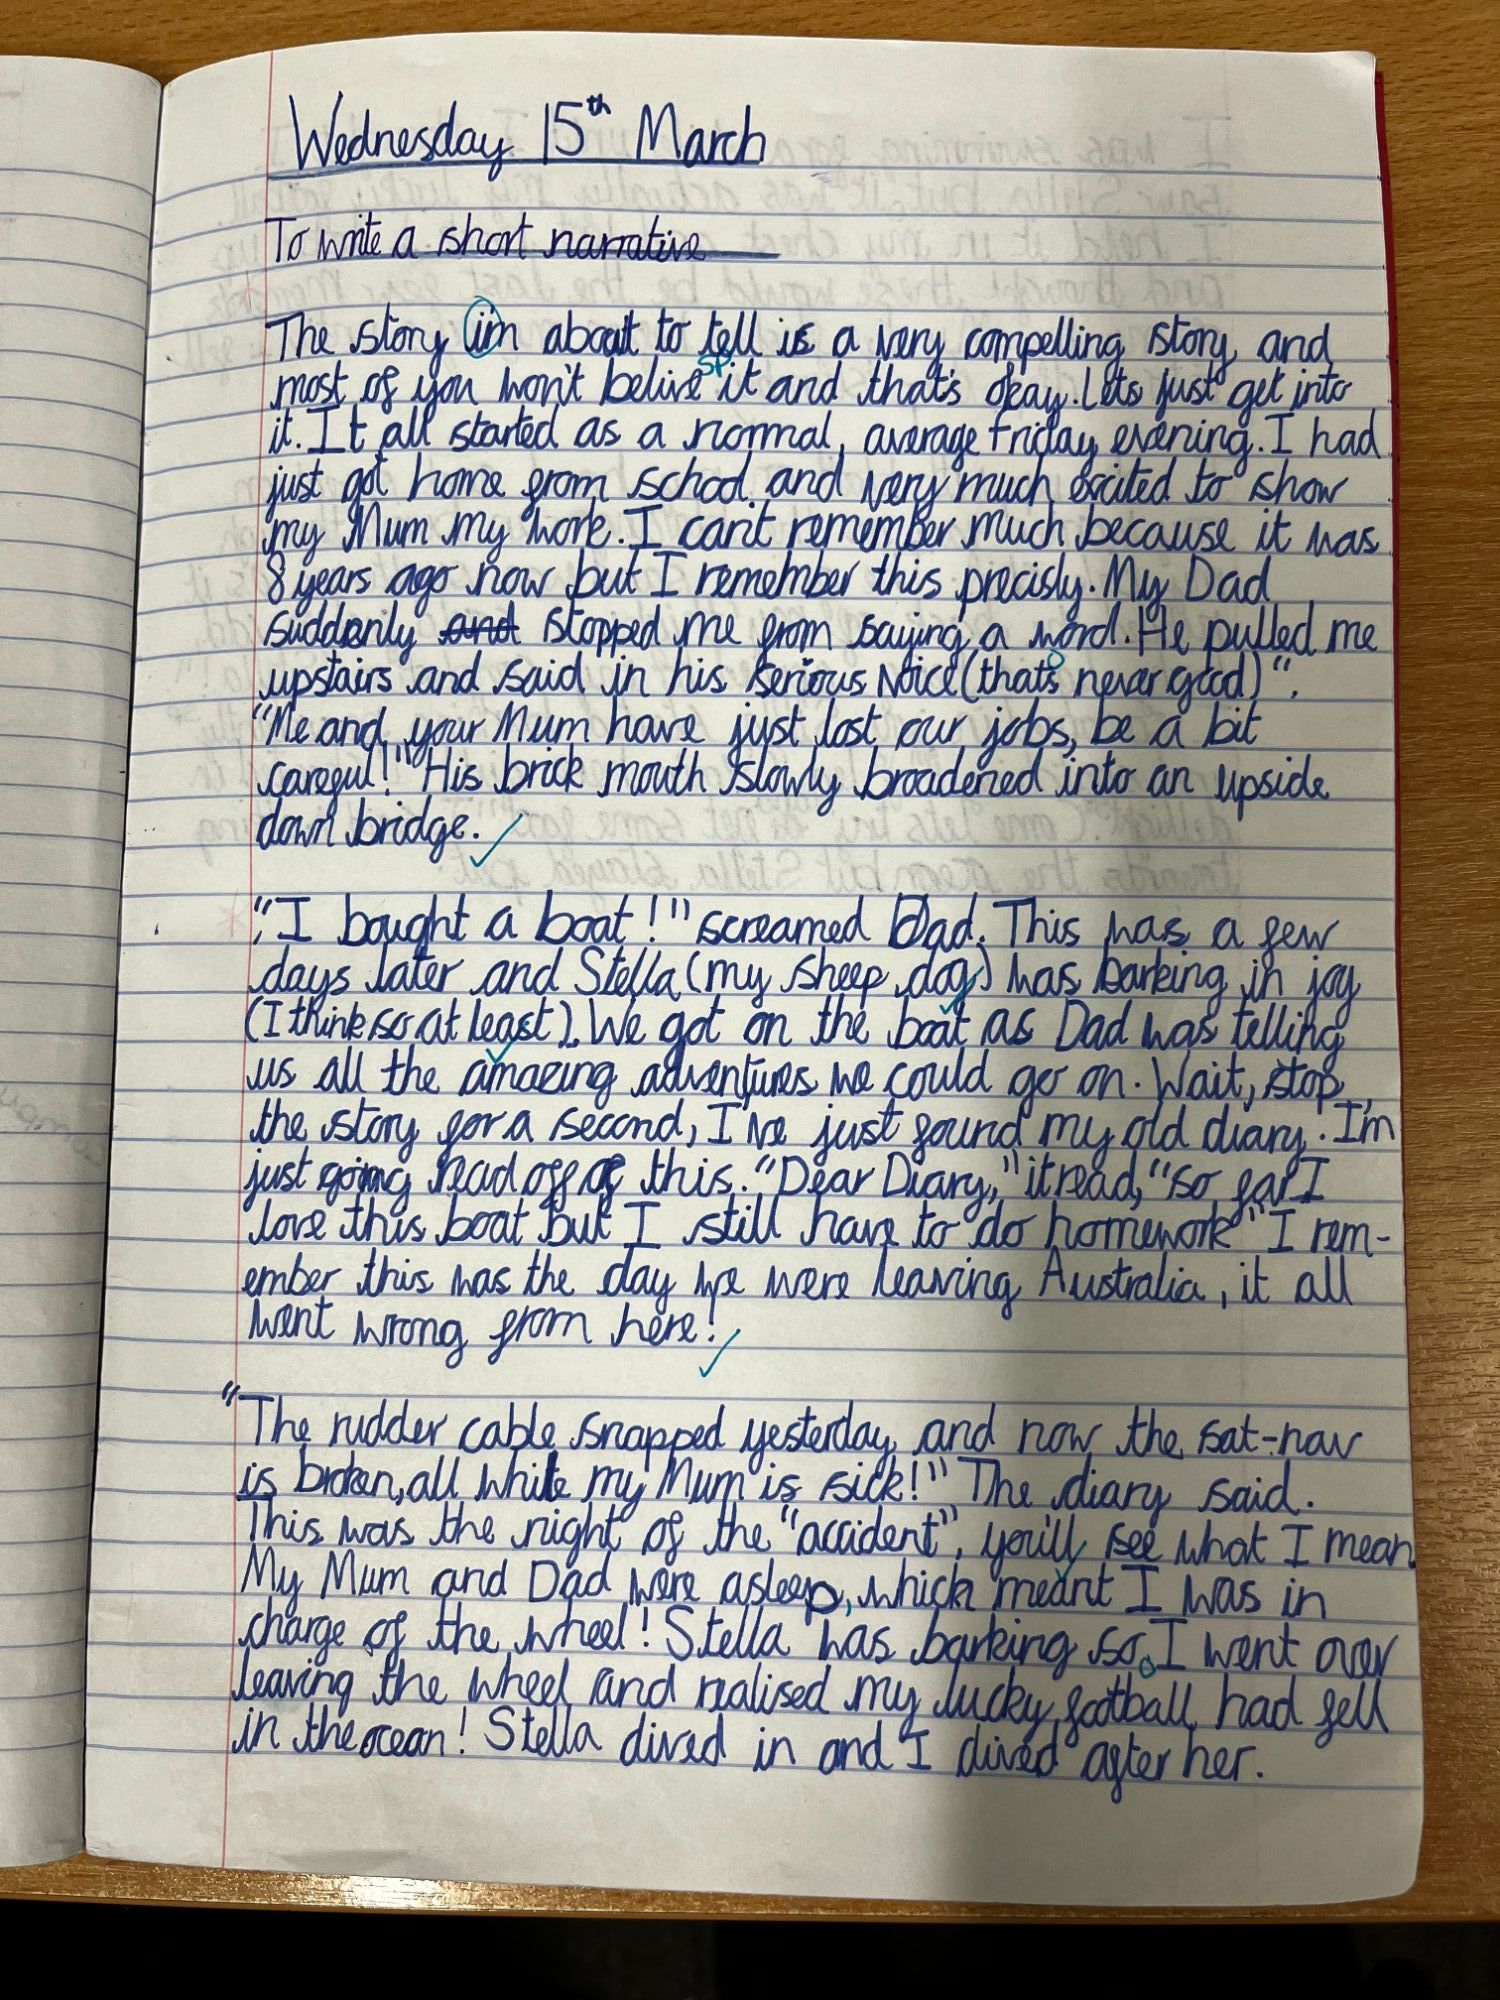 Wednesday 15th March
To write a short narrative
The story im about to tell is a very compelling story and
most of you won't belive sp it and that's okay. Lets just get into
it. It all started as a normal, average friday evening. I had
just got home from school and very much excited to show
my Mum my work. I can't remember much because it was
8 years ago now but I remember this precisly. My Dad
suddenly and stopped me from saying a word. He pulled me
upstairs and said in his serious voice (that's never good)".
"Me and your Mum have just lost our jobs, be a bit
careful!" His brick mouth slowly broadened into an upside
down bridge.
"I bought a boat!" screamed Dad. This was a few
days later and Stella (my sheep dog) was barking in joy
(I think so at least). We got on the boat as Dad was telling
us all the amazing adventures we could go on. Wait, stop
the story for a second, I've just found my old diary. I'm
just going read off of this. "Dear Diary," it read, "so far I
love this boat but I still have to do homework" I rem-
ember this was the day we were leaving Australia, it all
went wrong from here!
"The rudder cable snapped yesterday and now the sat-nav
is broken, all while my Mum is sick!" The diary said.
This was the night of the "accident", you'll see what I mean.
My Mum and Dad were asleep, which meant I was in
charge of the wheel! Stella was barking so I went over
leaving the wheel and realised my lucky football had fell
in the ocean! Stella dived in and I dived after her.